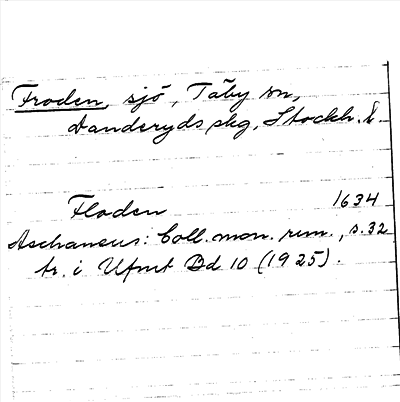 Froden, sjö, Täby sn,
Danderyds skg, Stockh. l.
Floden 1634
Aschaneus: Coll. mon. run., s. 32
tr. i Ufmt Bd 10 (1925).